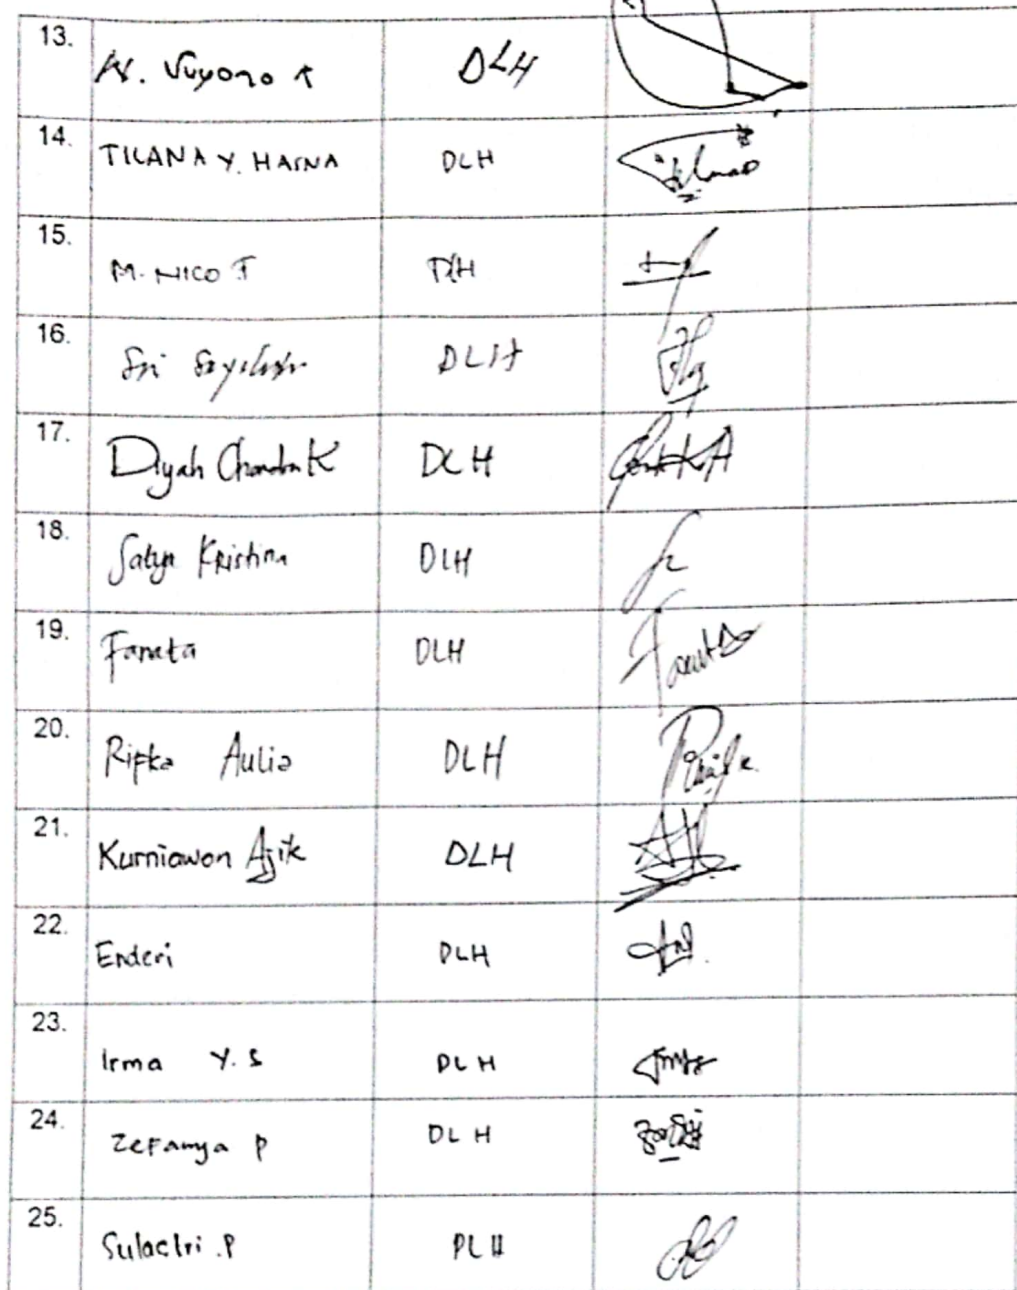 13. DLH
14. TILANA Y. HASNA DLH
15. M. NICO F DLH
16. Sri DLH
17. Dyah Chandra K DLH
18. Satya Kristina DLH
19. Fanata DLH
20. Rifka Aulia DLH
21. Kurniawan Ajik DLH
22. Enderi DLH
23. Irma Y. S DLH
24. Zefanya P DLH
25. Sulastri .P DLH